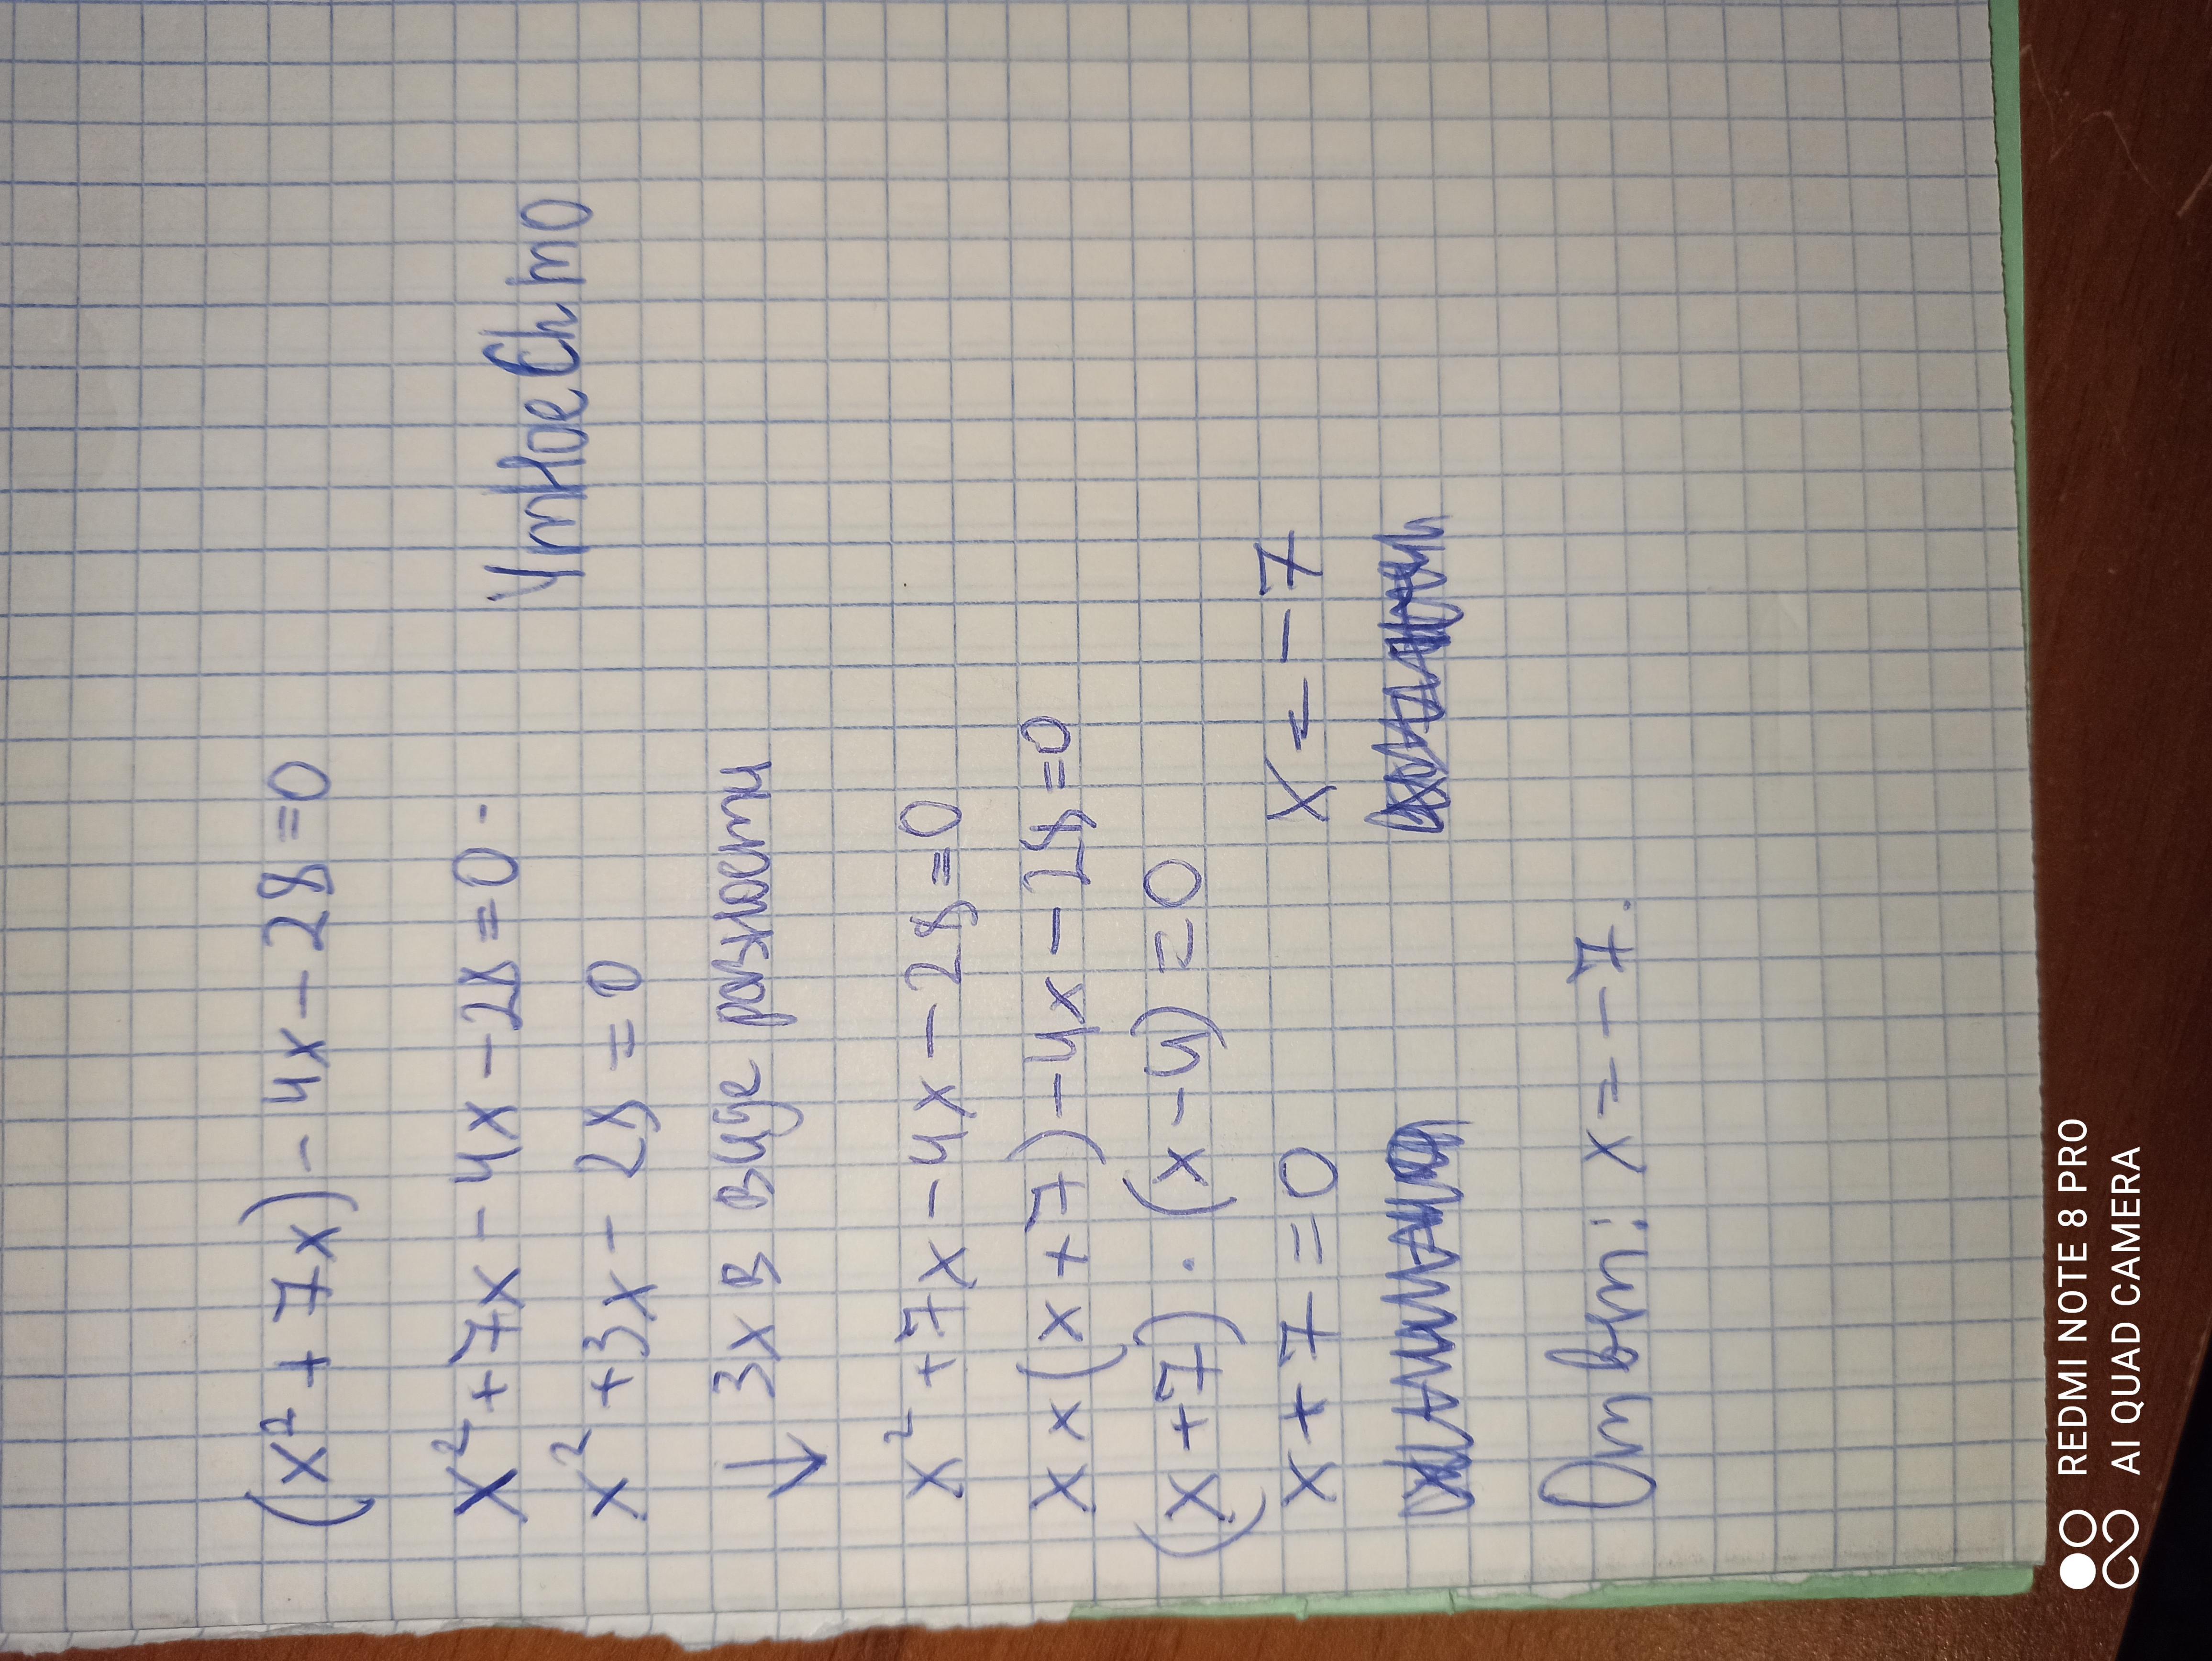 (x² + 7x) - 4x - 28 = 0
x² + 7x - 4x - 28 = 0 -
УтНоеChто
x² + 3x - 28 = 0
↓ 3x в виде разности
x² + 7x - 4x - 28 = 0
x x (x + 7) - 4x - 28 = 0
(x + 7) · (x - 4) = 0
x + 7 = 0 x = -7
Ответ: x = -7.
REDMI NOTE 8 PRO
AI QUAD CAMERA